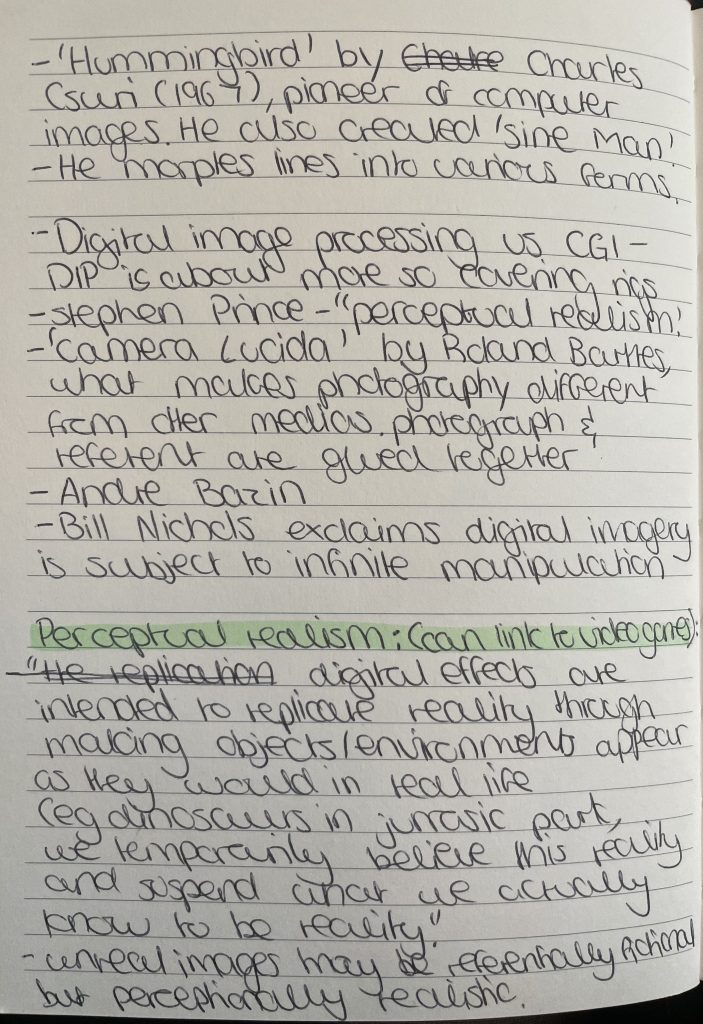 - 'Hummingbird' by Charles
Csuri (1967), pioneer of computer
images. He also created 'Sine Man'.
- He morphes lines into various forms.
- Digital image processing vs CGI -
DIP is about more so covering rigs
- Stephen Prince - "perceptual realism'.
- 'Camera Lucida' by Roland Barthes,
what makes photography different
from other medias. photograph &
referent are glued together
- Andre Bazin
- Bill Nichols exclaims digital imagery
is subject to infinite manipulation
Perceptual realism: (can link to video games):
- "The replication digital effects are
intended to replicate reality through
making objects/environments appear
as they would in real life
(eg dinosaurs in jurrasic park,
we temporarily believe this reality
and suspend what we actually
know to be reality".
- unreal images may be referentially fictional
but perceptionally realistic.